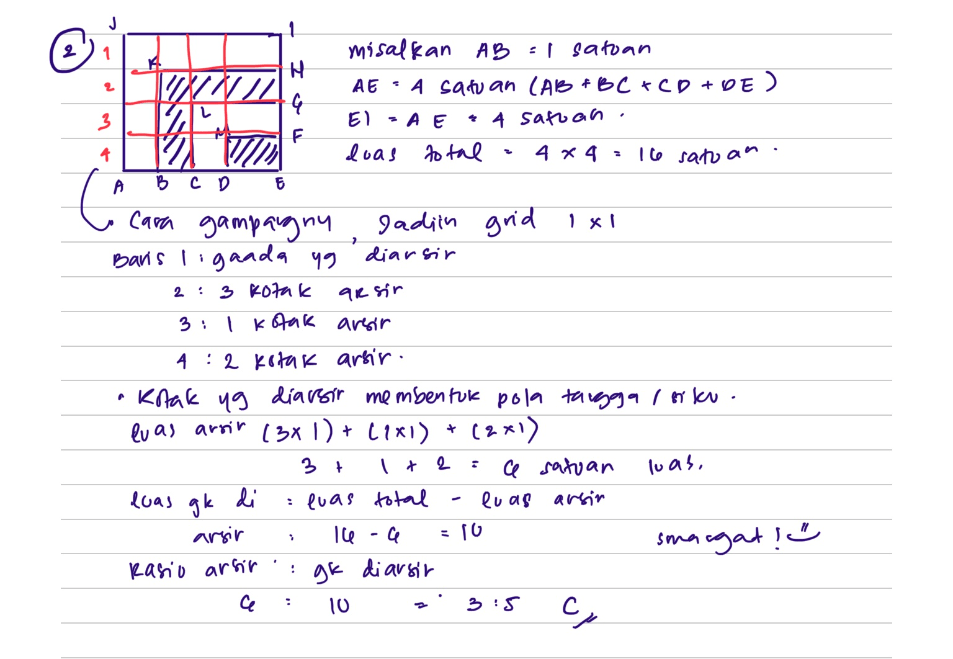 2) J I
1 misalkan AB = 1 satuan
2 K H AE = 4 satuan (AB + BC + CD + DE)
3 L G
M F EI = AE = 4 satuan.
4 luas total = 4 x 4 = 16 satuan.
A B C D E
Cara gampangny, jadiin grid 1 x 1
Baris 1 : gaada yg diarsir
2 : 3 kotak arsir
3 : 1 kotak arsir
4 : 2 kotak arsir.
• Kotak yg diarsir membentuk pola tangga / siku.
luas arsir (3x1) + (1x1) + (2x1)
3 + 1 + 2 = 6 satuan luas.
luas gk di : luas total - luas arsir
arsir : 16 - 6 = 10
smangat!
Rasio arsir : gk diarsir
6 : 10 = 3 : 5 C